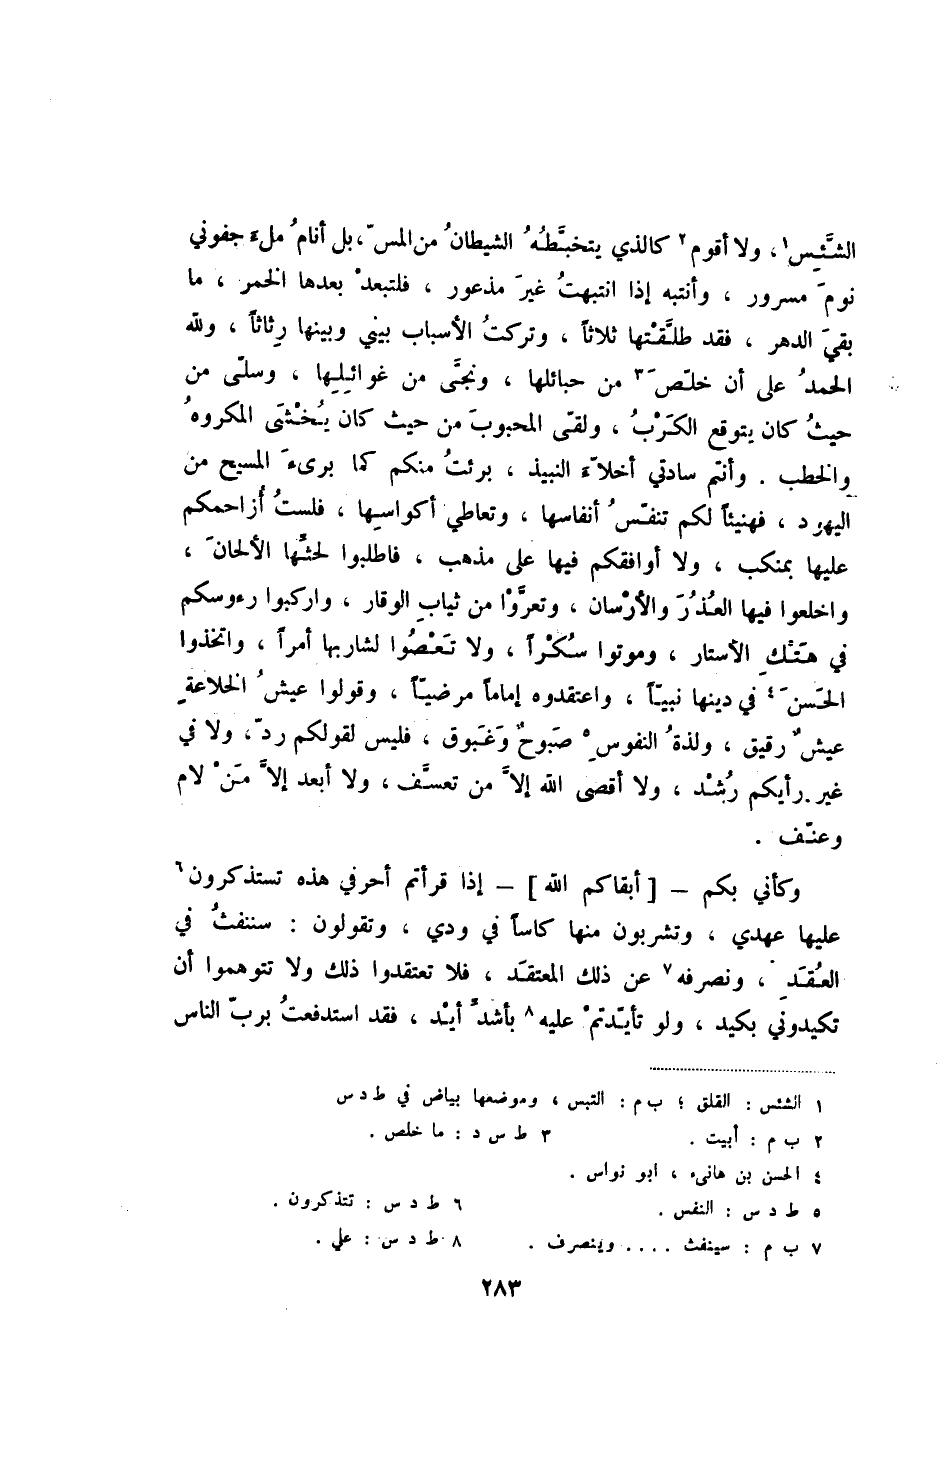 الشَّئِسِ١، ولا أقوم٢ كالذي يتخبَّطُهُ الشيطانُ من المسّ، بل أنامُ ملءَ جفوني
نومَ مسرور ، وأنتبه إذا انتبهتُ غيرَ مذعور ، فلتبعدْ بعدها الخمر ، ما
بقيَ الدهر ، فقد طلَّقتْها ثلاثاً ، وتركتُ الأسباب بيني وبينها رِثاثاً ، ولله
الحمدُ على أن خلّصَ٣ من حبائلها ، ونجَّى من غوائِلِها ، وسلّى من
حيثُ كان يتوقع الكَرْبُ ، ولقّى المحبوبَ من حيث كان يُخْشَى المكروهُ
والخطب . وأنتم سادتي أخلاّءَ النبيذ ، برئتُ منكم كما برىءَ المسيح من
اليهود ، فهنيئاً لكم تنفّسُ أنفاسها ، وتعاطي أكواسِها ، فلستُ أُزاحمكم
عليها بمنكب ، ولا أوافقكم فيها على مذهب ، فاطلبوا لحثِّها الألحانَ ،
واخلعوا فيها العُذُرَ والأرْسان ، وتعرَّوْا من ثيابِ الوقار ، واركبوا رءوسكم
في هَتْكِ الأستار ، وموتوا سُكْراً ، ولا تَعْصُوا لشاربها أمراً ، واتخذوا
الحَسنَ٤ في دينها نبيّاً ، واعتقدوه إماماً مرضيّاً ، وقولوا عيشُ الخلاعةِ
عيشٌ رقيق ، ولذةُ النفوسِ٥ صَبوحٌ وَغَبوق ، فليس لقولكم ردّ، ولا في
غير رأيكم رُشْد ، ولا أقصى الله إلاَّ من تعسَّف ، ولا أبعد إلاَّ مَنْ لام
وعنّف .
وكأني بكم – [ أبقاكم الله ] – إذا قرأتم أحرفي هذه تستذكرون٦
عليها عهدي ، وتشربون منها كاساً في ودي ، وتقولون : سننفثُ في
العُقَدِ ، ونصرفه٧ عن ذلك المعتقَد ، فلا تعتقدوا ذلك ولا تتوهموا أن
تكيدوني بكيد ، ولو تأيّدتمْ عليه٨ بأشدِّ أيْد ، فقد استدفعتُ بربّ الناس
١ الشئس : القلق ؛ ب م : التبس ، وموضعها بياض في ط د س
٢ ب م : أبيت . ٣ ط س د : ما خلص .
٤ الحسن بن هانىء ، ابو نواس .
٥ ط د س : النفس . ٦ ط د س : تتذكرون .
٧ ب م : سينفث .... وينصرف . ٨ ط د س : علي .
٢٨٣